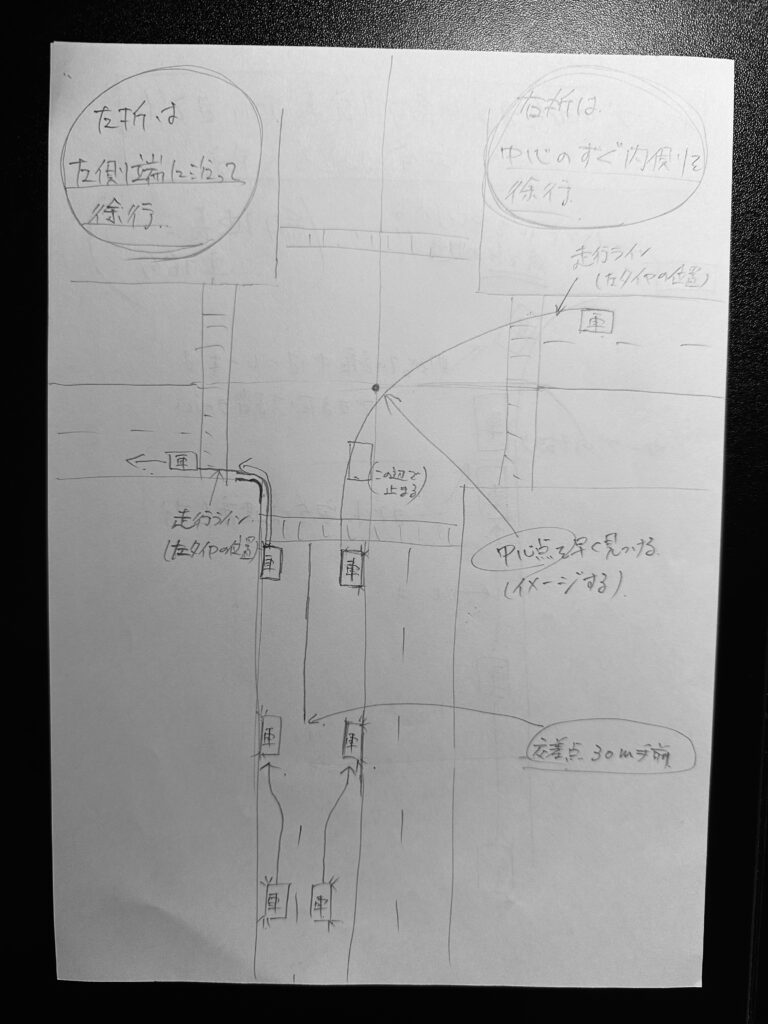 左折は
左側端に沿って
徐行.
右折は.
中心のすぐ内側を
徐行
走行ライン
(左タイヤの位置)
車
車
(この辺で
止まる)
走行ライン.
(左タイヤの位置)
車
車
中心点を早く見つける.
(イメージする).
車
車
交差点 30m手前
車
車